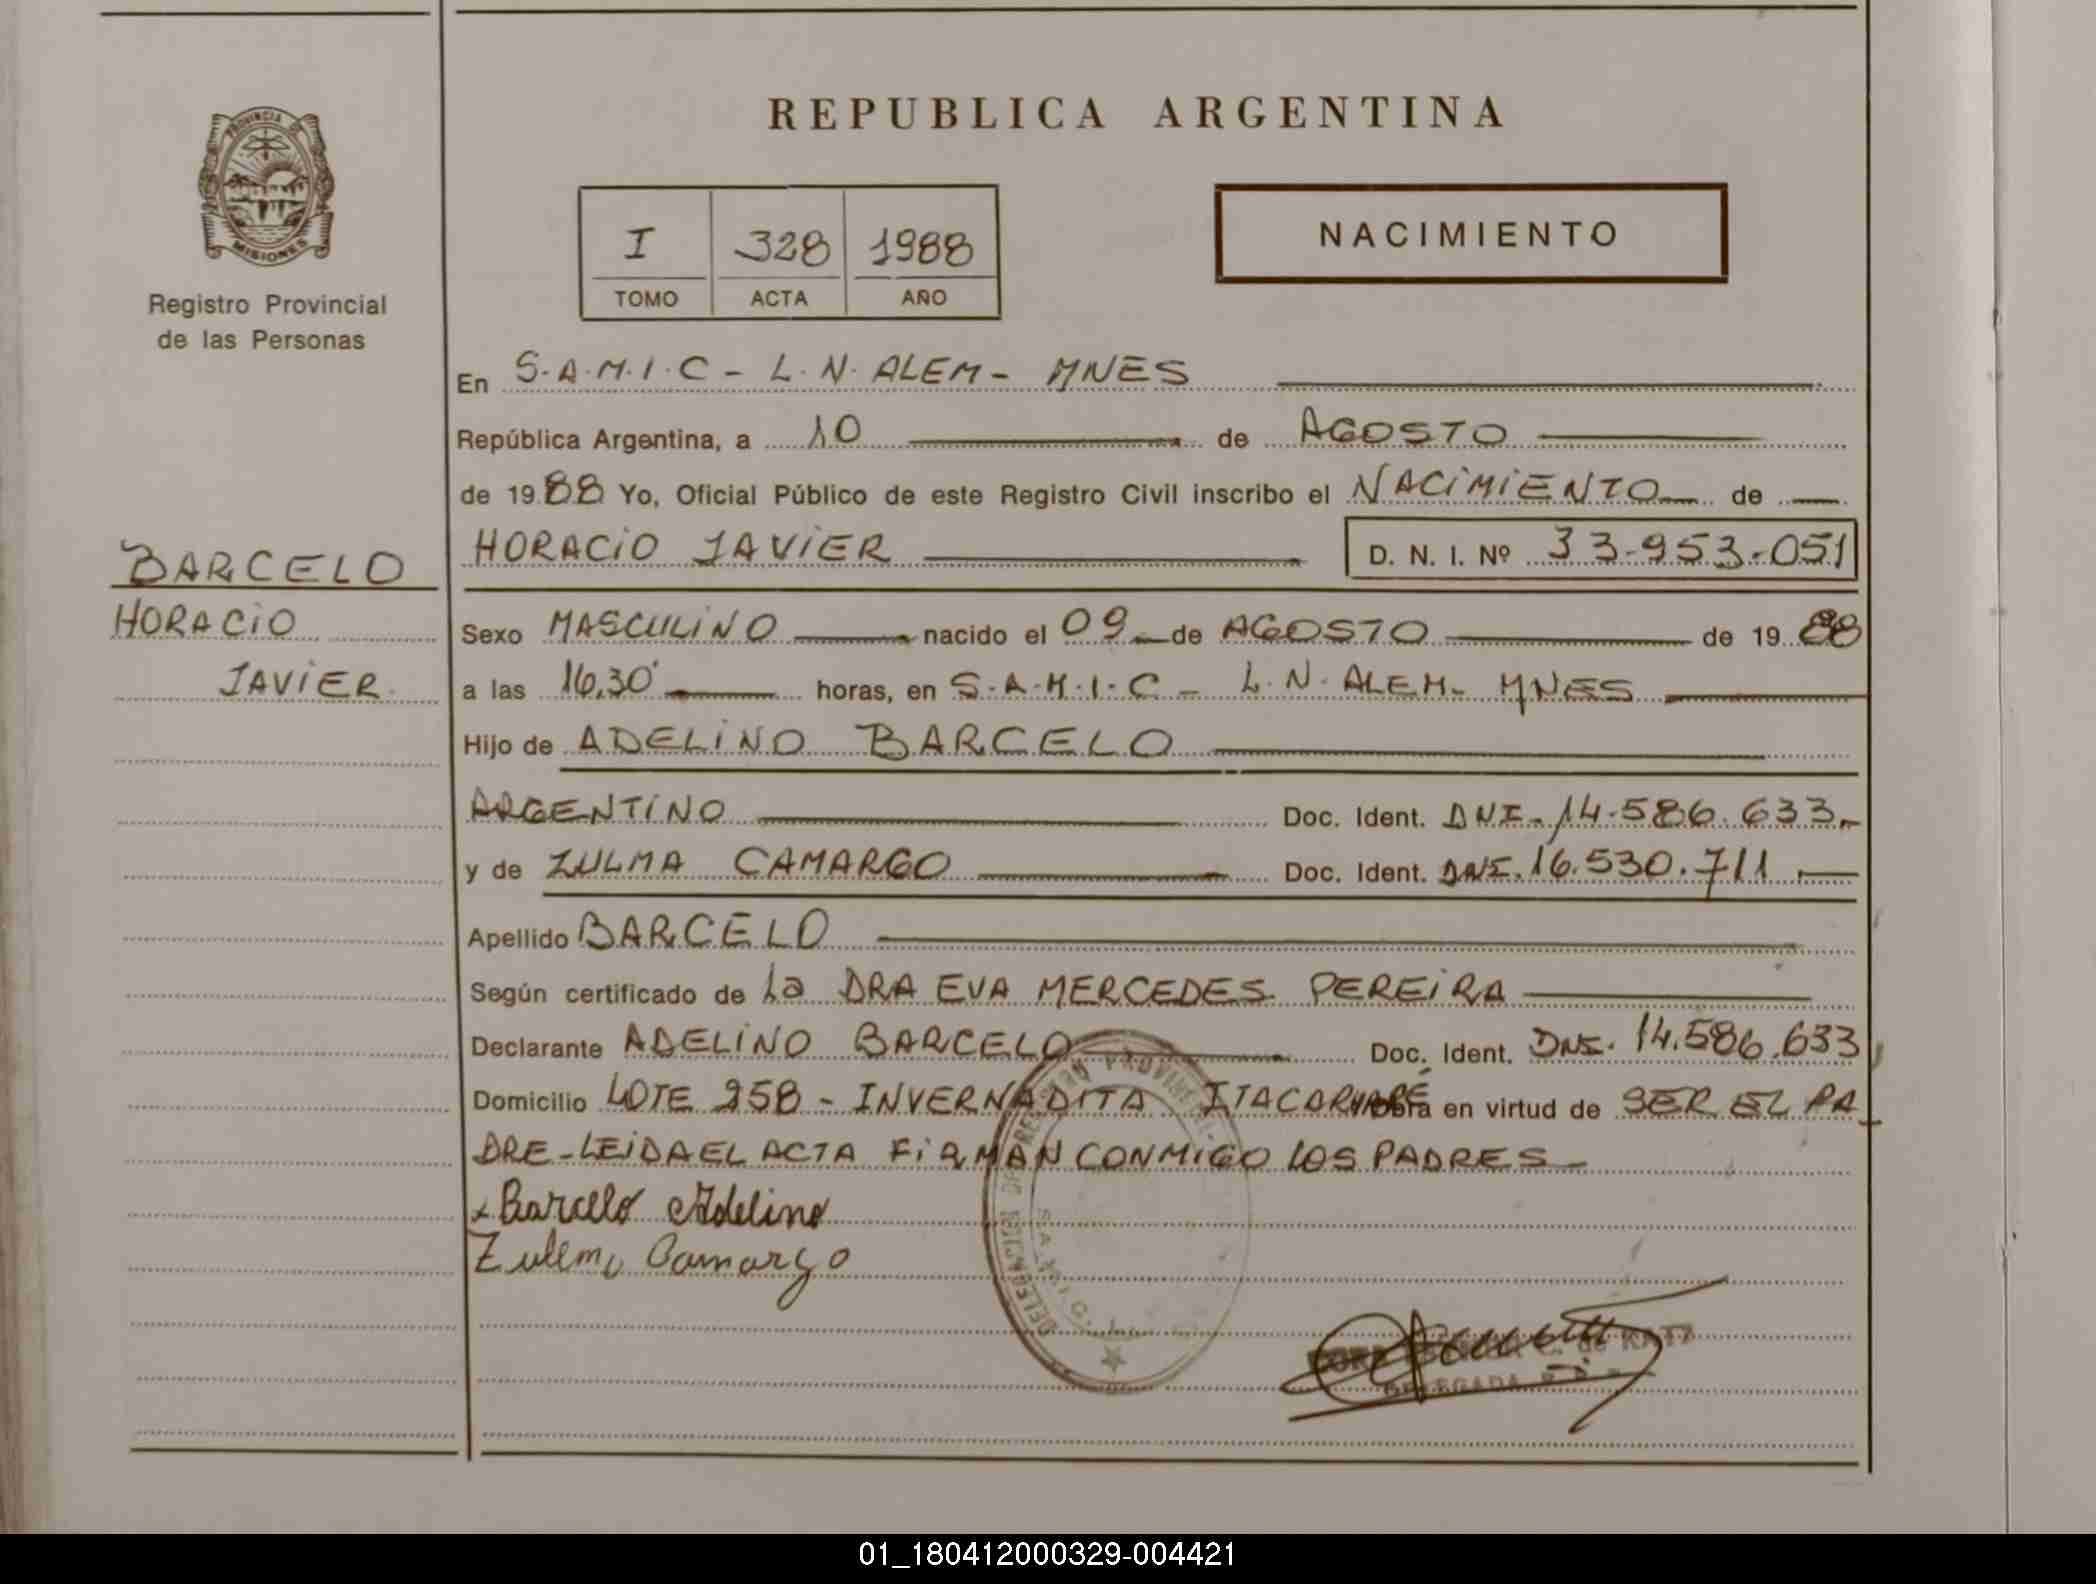 REPUBLICA ARGENTINA
PROVINCIA DE
MISIONES
Registro Provincial
de las Personas
I 328 1988
TOMO ACTA AÑO
NACIMIENTO
En S.A.M.I.C - L.N. ALEM - MNES
República Argentina, a 10 de AGOSTO
de 1988 Yo, Oficial Público de este Registro Civil inscribo el NACIMIENTO de
HORACIO JAVIER D. N. I. Nº 33-953-051
BARCELO
HORACIO
JAVIER.
Sexo MASCULINO nacido el 09 de AGOSTO de 1988
a las 16,30' horas, en S.A.M.I.C - L.N. ALEM - MNES
Hijo de ADELINO BARCELO
ARGENTINO Doc. Ident. DNI-14.586.633-
y de ZULMA CAMARGO Doc. Ident. DNI.16.530.711
Apellido BARCELO
Según certificado de La DRA EVA MERCEDES PEREIRA
Declarante ADELINO BARCELO Doc. Ident. DNI. 14.586.633
Domicilio LOTE 258 - INVERNADITA ITACARUARÉ obra en virtud de SER EL PA_
DRE-LEIDA EL ACTA FIRMAN CONMIGO LOS PADRES-
x Barcelo Adelino
Zulema Camargo
DELEGADA
01_180412000329-004421